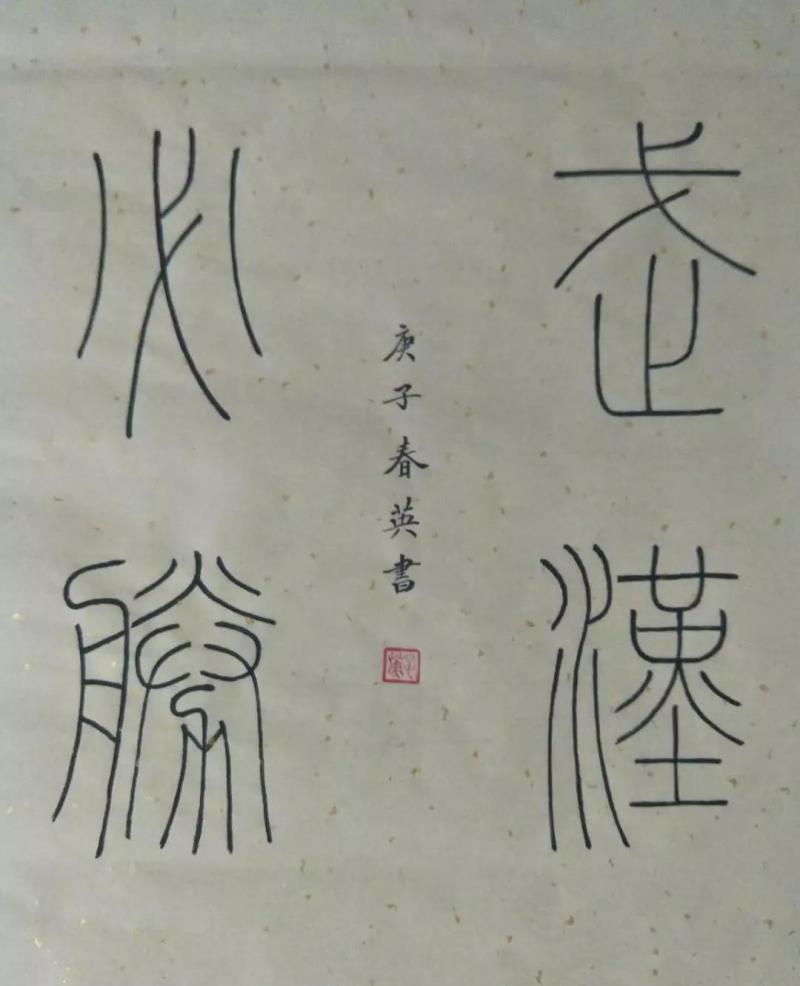 武漢
必勝
庚子春英書